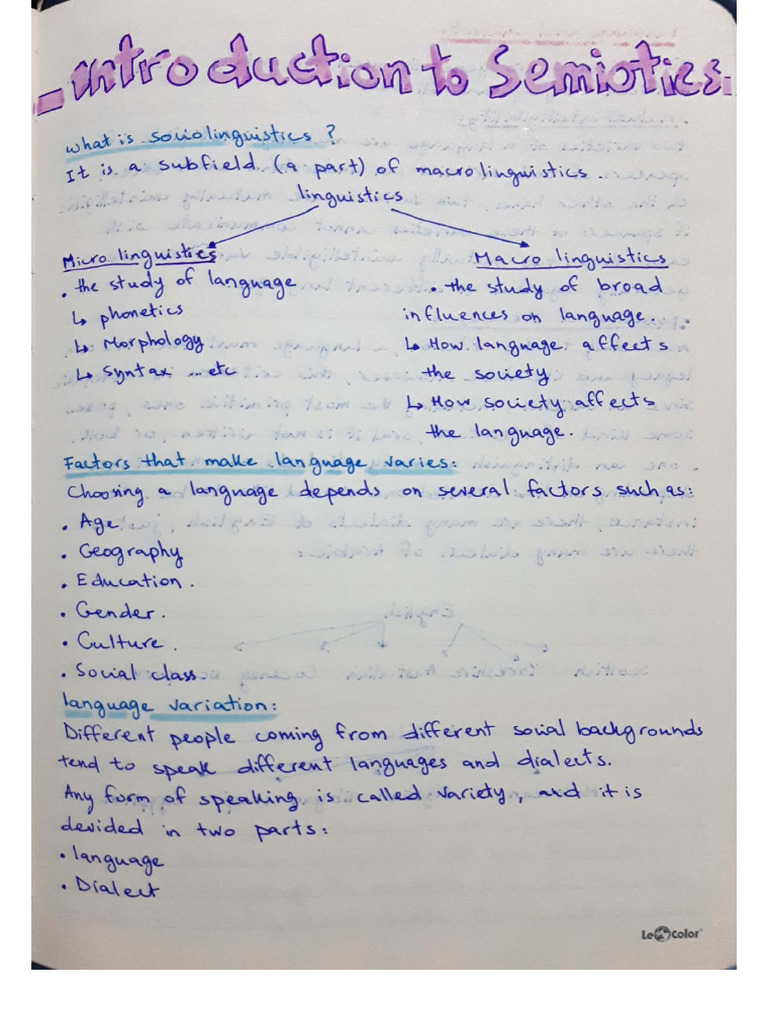 Introduction to Semiotics.
what is sociolinguistics ?
It is a subfield (a part) of macrolinguistics.
linguistics
Micro linguistics
. the study of language
↳ phonetics
↳ Morphology
↳ Syntax ...etc
Macro linguistics
. the study of broad
influences on language.
↳ How language affects
the society
↳ How society affects
the language.
Factors that make language varies:
Choosing a language depends on several factors such as:
. Age
. Geography
. Education.
. Gender.
. Culture.
. Social class
language variation:
Different people coming from different social backgrounds
tend to speak different languages and dialects.
Any form of speaking is called variety, and it is
devided in two parts:
. language
. Dialect
LeColor